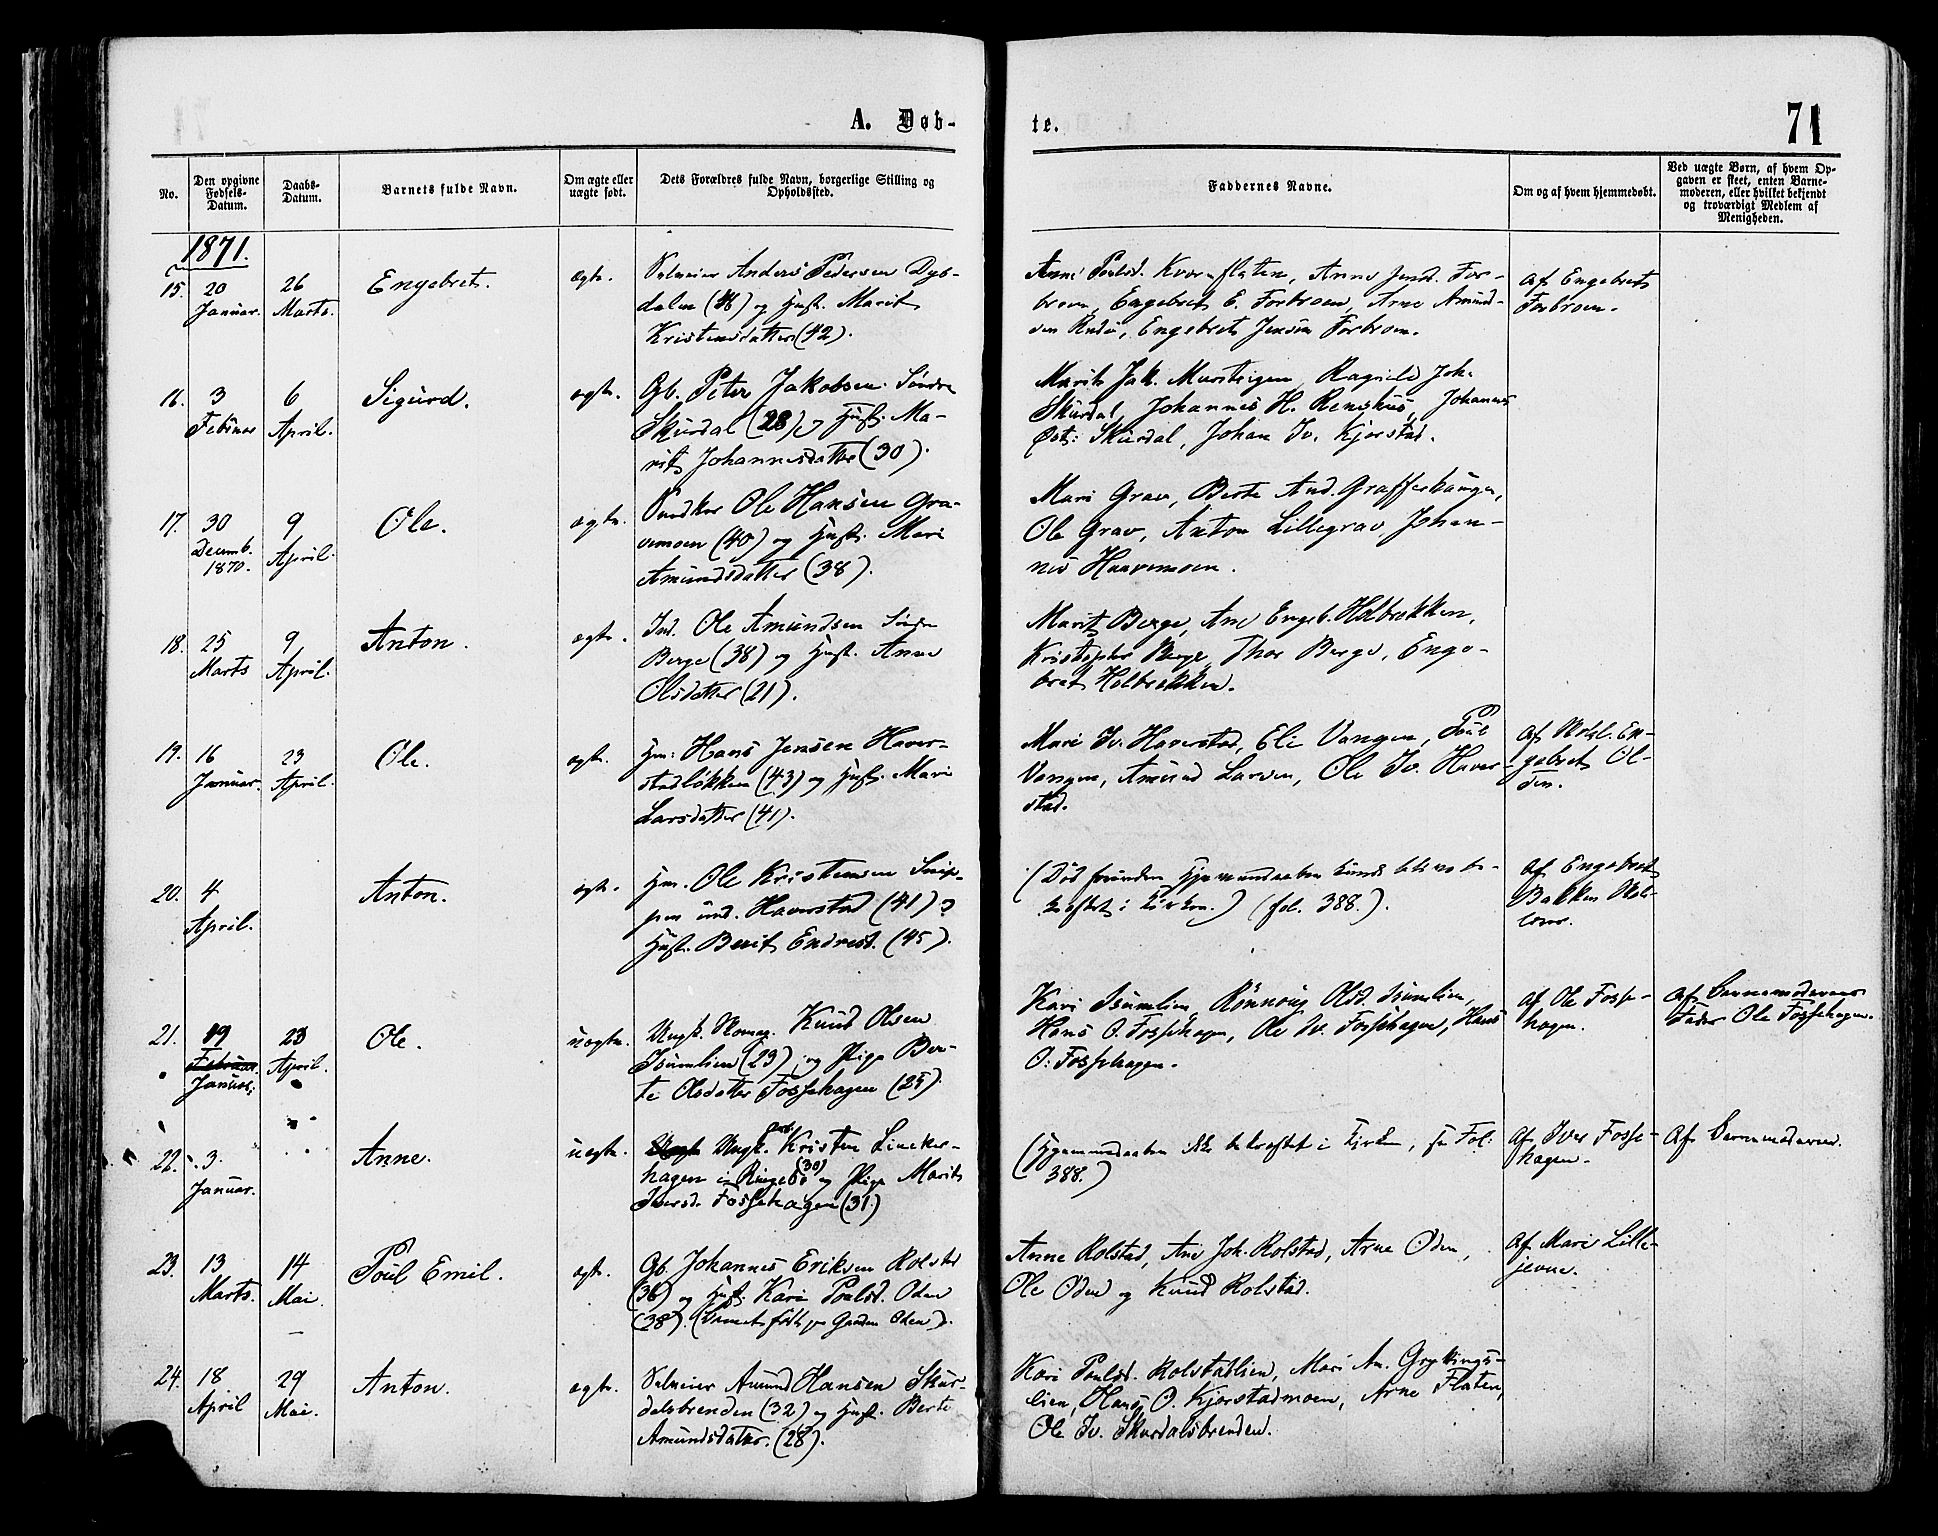 A. Døb-
te.
71
No.
Den opgivne
Fødsels-
Datum.
Daabs-
Datum.
Barnets fulde Navn.
Om ægte eller
uægte født.
Dets Forældres fulde Navn, borgerlige Stilling og
Opholdssted.
Faddernes Navne.
Om og af hvem hjemmedøbt.
Ved uægte Børn, af hvem Op-
gaven er skeet, enten Barne-
moderen, eller hvilket bekjendt
og troværdigt Medlem af
Menigheden.
1871.
15.
20
Januar.
26
Marts.
Engebret.
ægte.
Selveier Anders Pedersen Dyb-
dalen og Hust. Marit
Kristensdatter (42).
Poulsd. Kvernflaten, Anne Jensd. For-
broen, Engebret E. Forbroen, Arne Amund-
sen, Engebret Jensen Forbroen.
af Engebret
Forbroen.
16.
3
Februar
6
April.
Sigurd.
ægte.
Gb. Peter Jakobsen Søndre
Skurdal (28) og Hust. Ma-
rit Johannesdatter (30).
Marit Jak. Ragnild Joh.
Skurdal, Johannes H. Johannes
Skurdal, Johan Iv. Kjorstad.
17.
30
Decemb.
1870.
9
April.
Ole.
ægte.
Ole Hansen Gra-
vemoen (40) og Hust. Mari
Amundsdatter (38).
Mari Grav, Berte And. Grafferhaugen,
Ole Grav, Anton Lillegrav, Johan-
nes Haavemoen.
18.
25
Marts
9
April.
Anton.
ægte.
Ind. Ole Amundsen Søndre
Berge (38) og Hust. Anne
Olsdatter (21).
Marit Berge, Ane Engeb. Holbrækken,
Kristopher Berge, Thor Berge, Enge-
bret Holbrækken.
19.
16
Januar.
23
April.
Ole.
ægte.
Hm. Hans Jensen Haver-
stadløkken (43) og Hust. Mari
Larsdatter (41).
Mari Iv. Haverstad, Eli Vangen, Poul
Vangen, Amund Larsen, Ole Iv. Haver-
stad.
af En-
gebret Ol-
20.
4
April.
Anton.
ægte.
Hm. Ole Kristensen Snip-
pen ind. Haverstad (41) og
Hust. Berit Endresd. (45).
(Død forinden Hjemmedaaben kunde blive be-
kræftet i Kirken.) (fol. 388.).
af Engebret
Bakken
21.
19
Februar.
Januar.
23
April.
Ole.
uægte.
Ungk. Knud Olsen
Isumlien (23) og Pige Ber-
te Olsdatter Fossehagen (25).
Kari Isumlien, Rønnaug Olsd. Isumlien,
Hans O. Fossehagen, Ole Iv. Fossehagen, Hans
O. Fossehagen.
af Ole Fosse-
hagen.
af Barnemoderens
Fader Ole Fossehagen.
22.
3
Januar.
Anne.
uægte.
Ungk. Kristen
hagen i Ringebo (30) og Pige Marit
Iversd. Fossehagen (31)
(Hjemmedaaben ikke bekræftet i Kirken, se Fol.
388.)
af Iver Fosse-
hagen.
af Barnemoderen.
23.
13
Marts.
14
Mai.
Poul Emil.
ægte.
Gb. Johannes Eriksen Rolstad
(36) og Hust. Kari Poulsd. Oden
(38). (Barnet født paa Gaarden Oden).
Anne Rolstad, Ane Joh. Rolstad, Arne Oden,
Ole Oden og Knud Rolstad.
af Mari Lille-
jevne.
24.
18
April
29
Mai.
Anton.
ægte.
Selveier Amund Hansen Skur-
dalsbrenden (32) og Hust. Berte
Amundsdatter. (28).
Kari Poulsd. Rolstadlien, Mari Am. Gryttings-
lien, Hans O. Kjorstadmoen, Arne Flaten,
Ole Iv. Skurdalsbrenden.